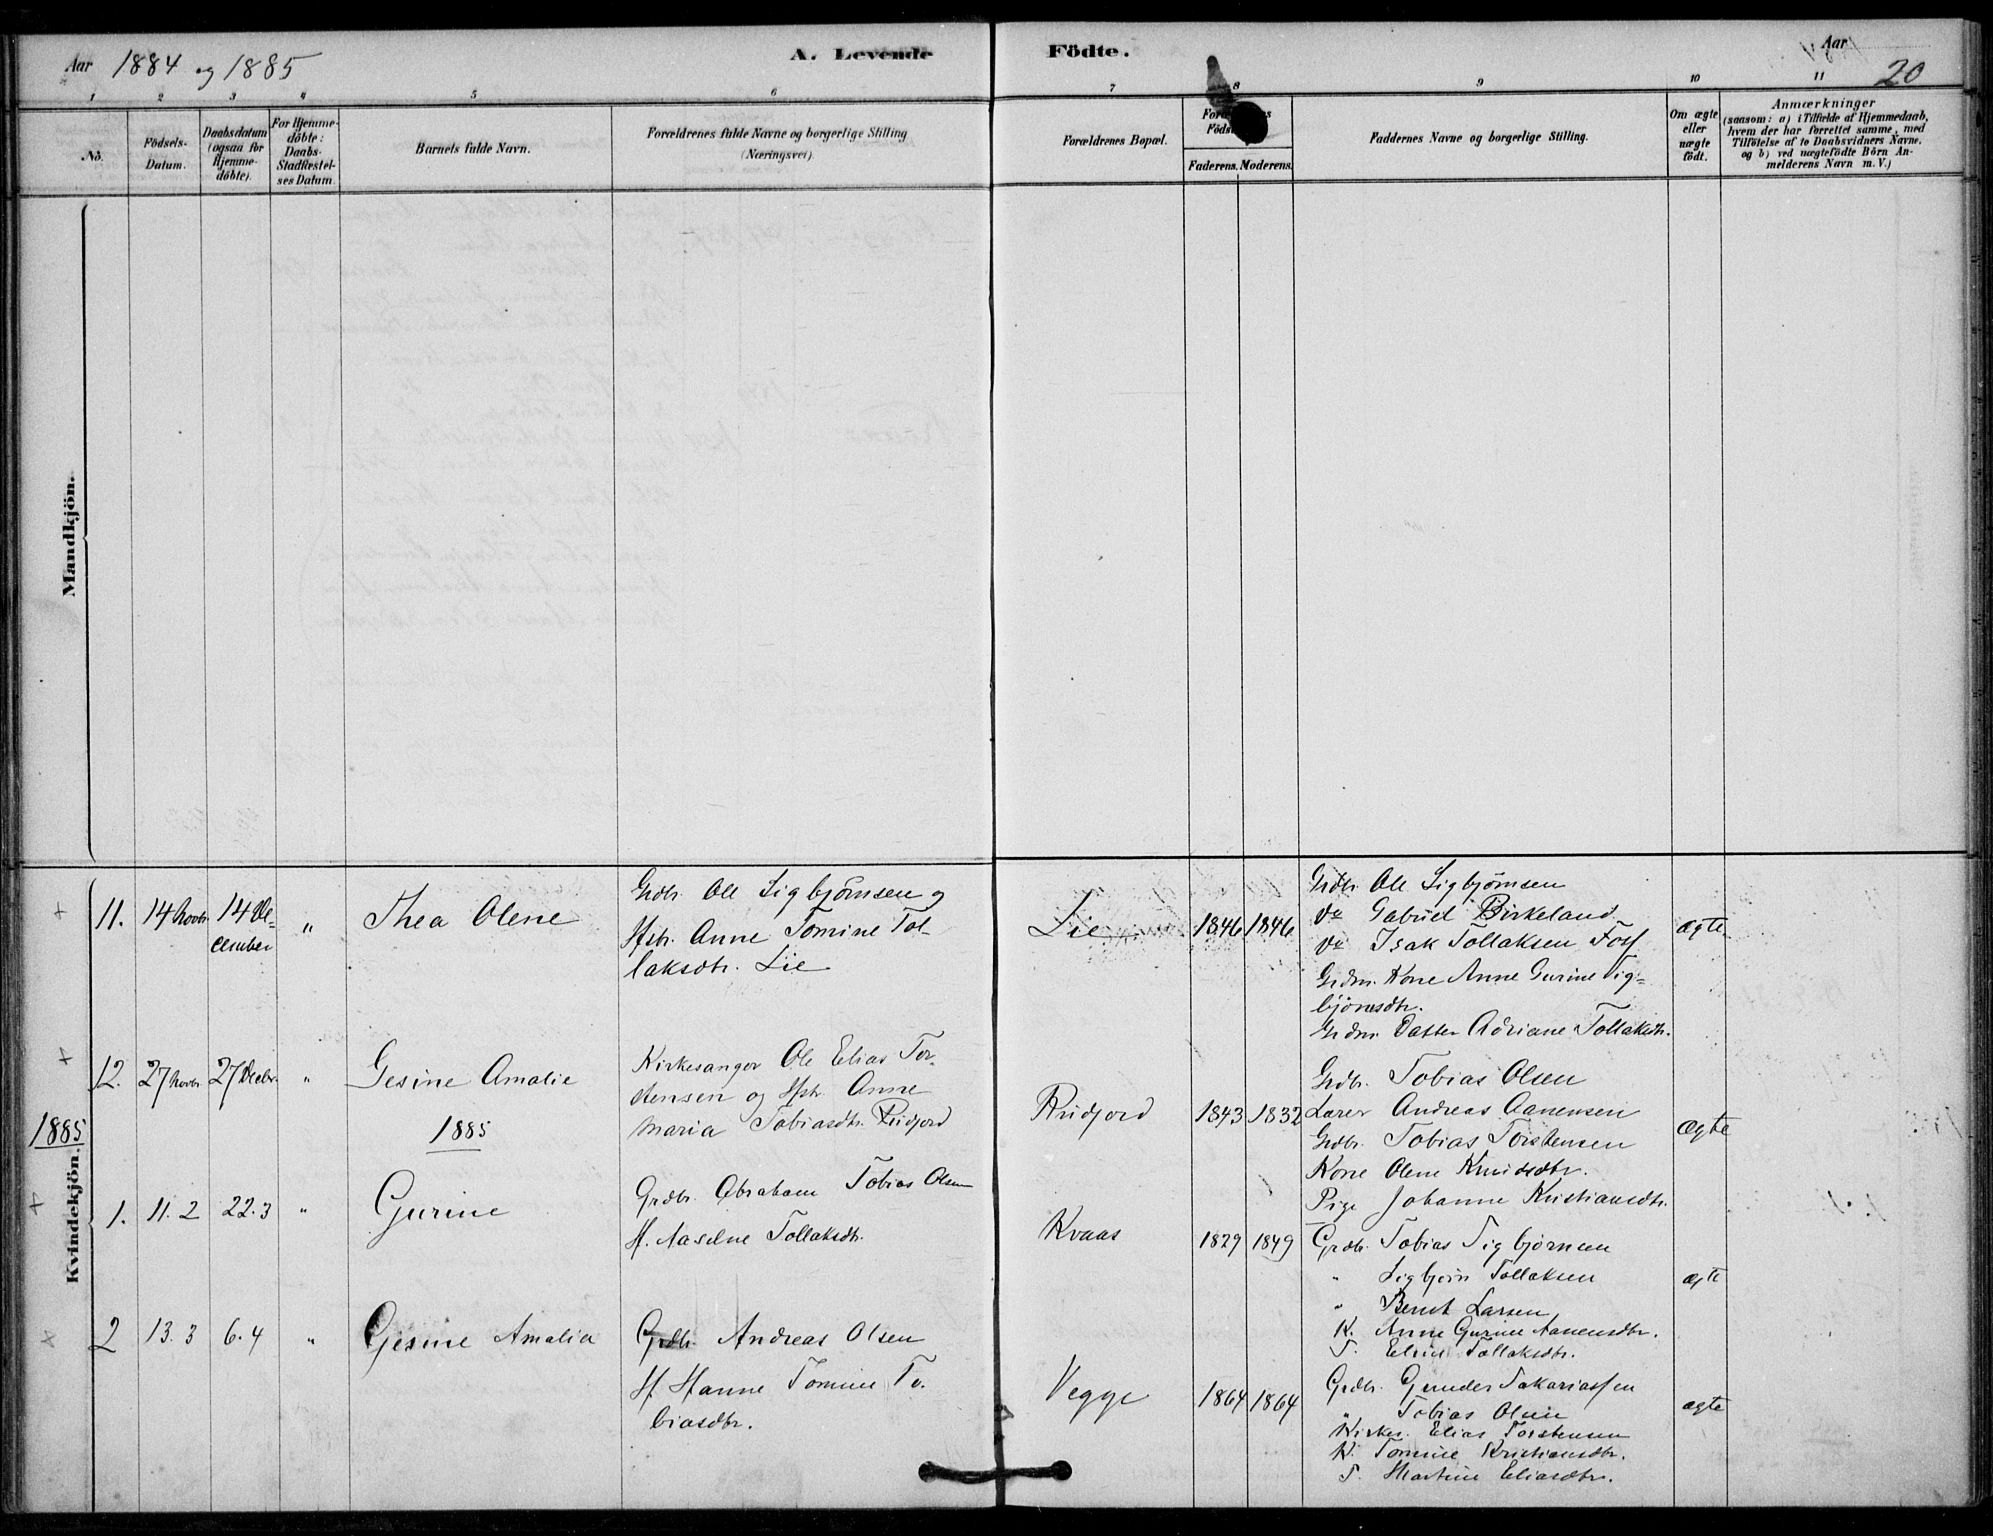 Aar 1884 og 1885
A. Levende Födte.
Aar
20
1 2 3 4 5 6 7 8 9 10 11
No.
Födsels-Datum.
Daabsdatum (ogsaa for Hjemme-döbte).
For Hjemme-döbte: Daabs-Stadfæstel-ses Datum.
Barnets fulde Navn.
Forældrenes fulde Navne og borgerlige Stilling (Næringsvei).
Forældrenes Bopæl.
Faderens. Moderens.
Faddernes Navne og borgerlige Stilling.
Om ægte eller uægte födt.
Anmærkninger
(saasom: a) i Tilfælde af Hjemmedaab, hvem der har forrettet samme, med Tilföielse af to Daabsvidners Navne. og b) ved uægtefödte Börn An-melderens Navn m. V.)
Mandkjön.
Kvindekjön.
11. 14 Novbr. 14 De-
cember
"
Thea Olene
Grdbr. Ole Sigbjörnsen og
Hstr. Anne Tomine Tol-
laksdtr. Lie
Lie
1846 1846
Grdbr. Ole Sigbjörnsen
do Gabriel Birkeland
do Isak Tollaksen Foss
Grdm. Kone Anne Gurine Sig=
björnsdtr.
Grdm. Datter Adriane Tollaksdtr.
ægte
12. 27 Novbr. 27 Decbr. "
Gesine Amalie
Kirkesanger Ole Elias Tor-
stensen og Hstr. Anne
Maria Tobiasdtr. Rudjord
Rudjord
1843 1832
Grdbr. Tobias Olsen
Lærer Andreas Aanensen
Grdbr. Tobias Torstensen
Kone Olene Knudsdtr.
Pige Johanne Kristiansdtr.
Ægte
1885
1885
1. 11.2 22.3 "
Gurine
Grdbr. Abraham Tobias Olsen
H. Aaselne Tollaksdtr.
Kvaas
1829 1849
Grdbr. Tobias Sigbjörnsen
" Sigbjörn Tollaksen
" Bernt Larsen
K. Anne Gurine Aanensdtr.
P. Elsine Tollaksdtr.
ægte
2 13.3 6.4 "
Gesine Amalia
Grdbr. Andreas Olsen
H. Hanne Tomine To-
biasdtr.
Vegge
1864 1864
Grdbr. Gunder Sakariassen
" Tobias Olsen
Kirkes. Elias Torstensen
K. Tomine Kristiansdtr.
P. Martine Eliasdtr.
ægte